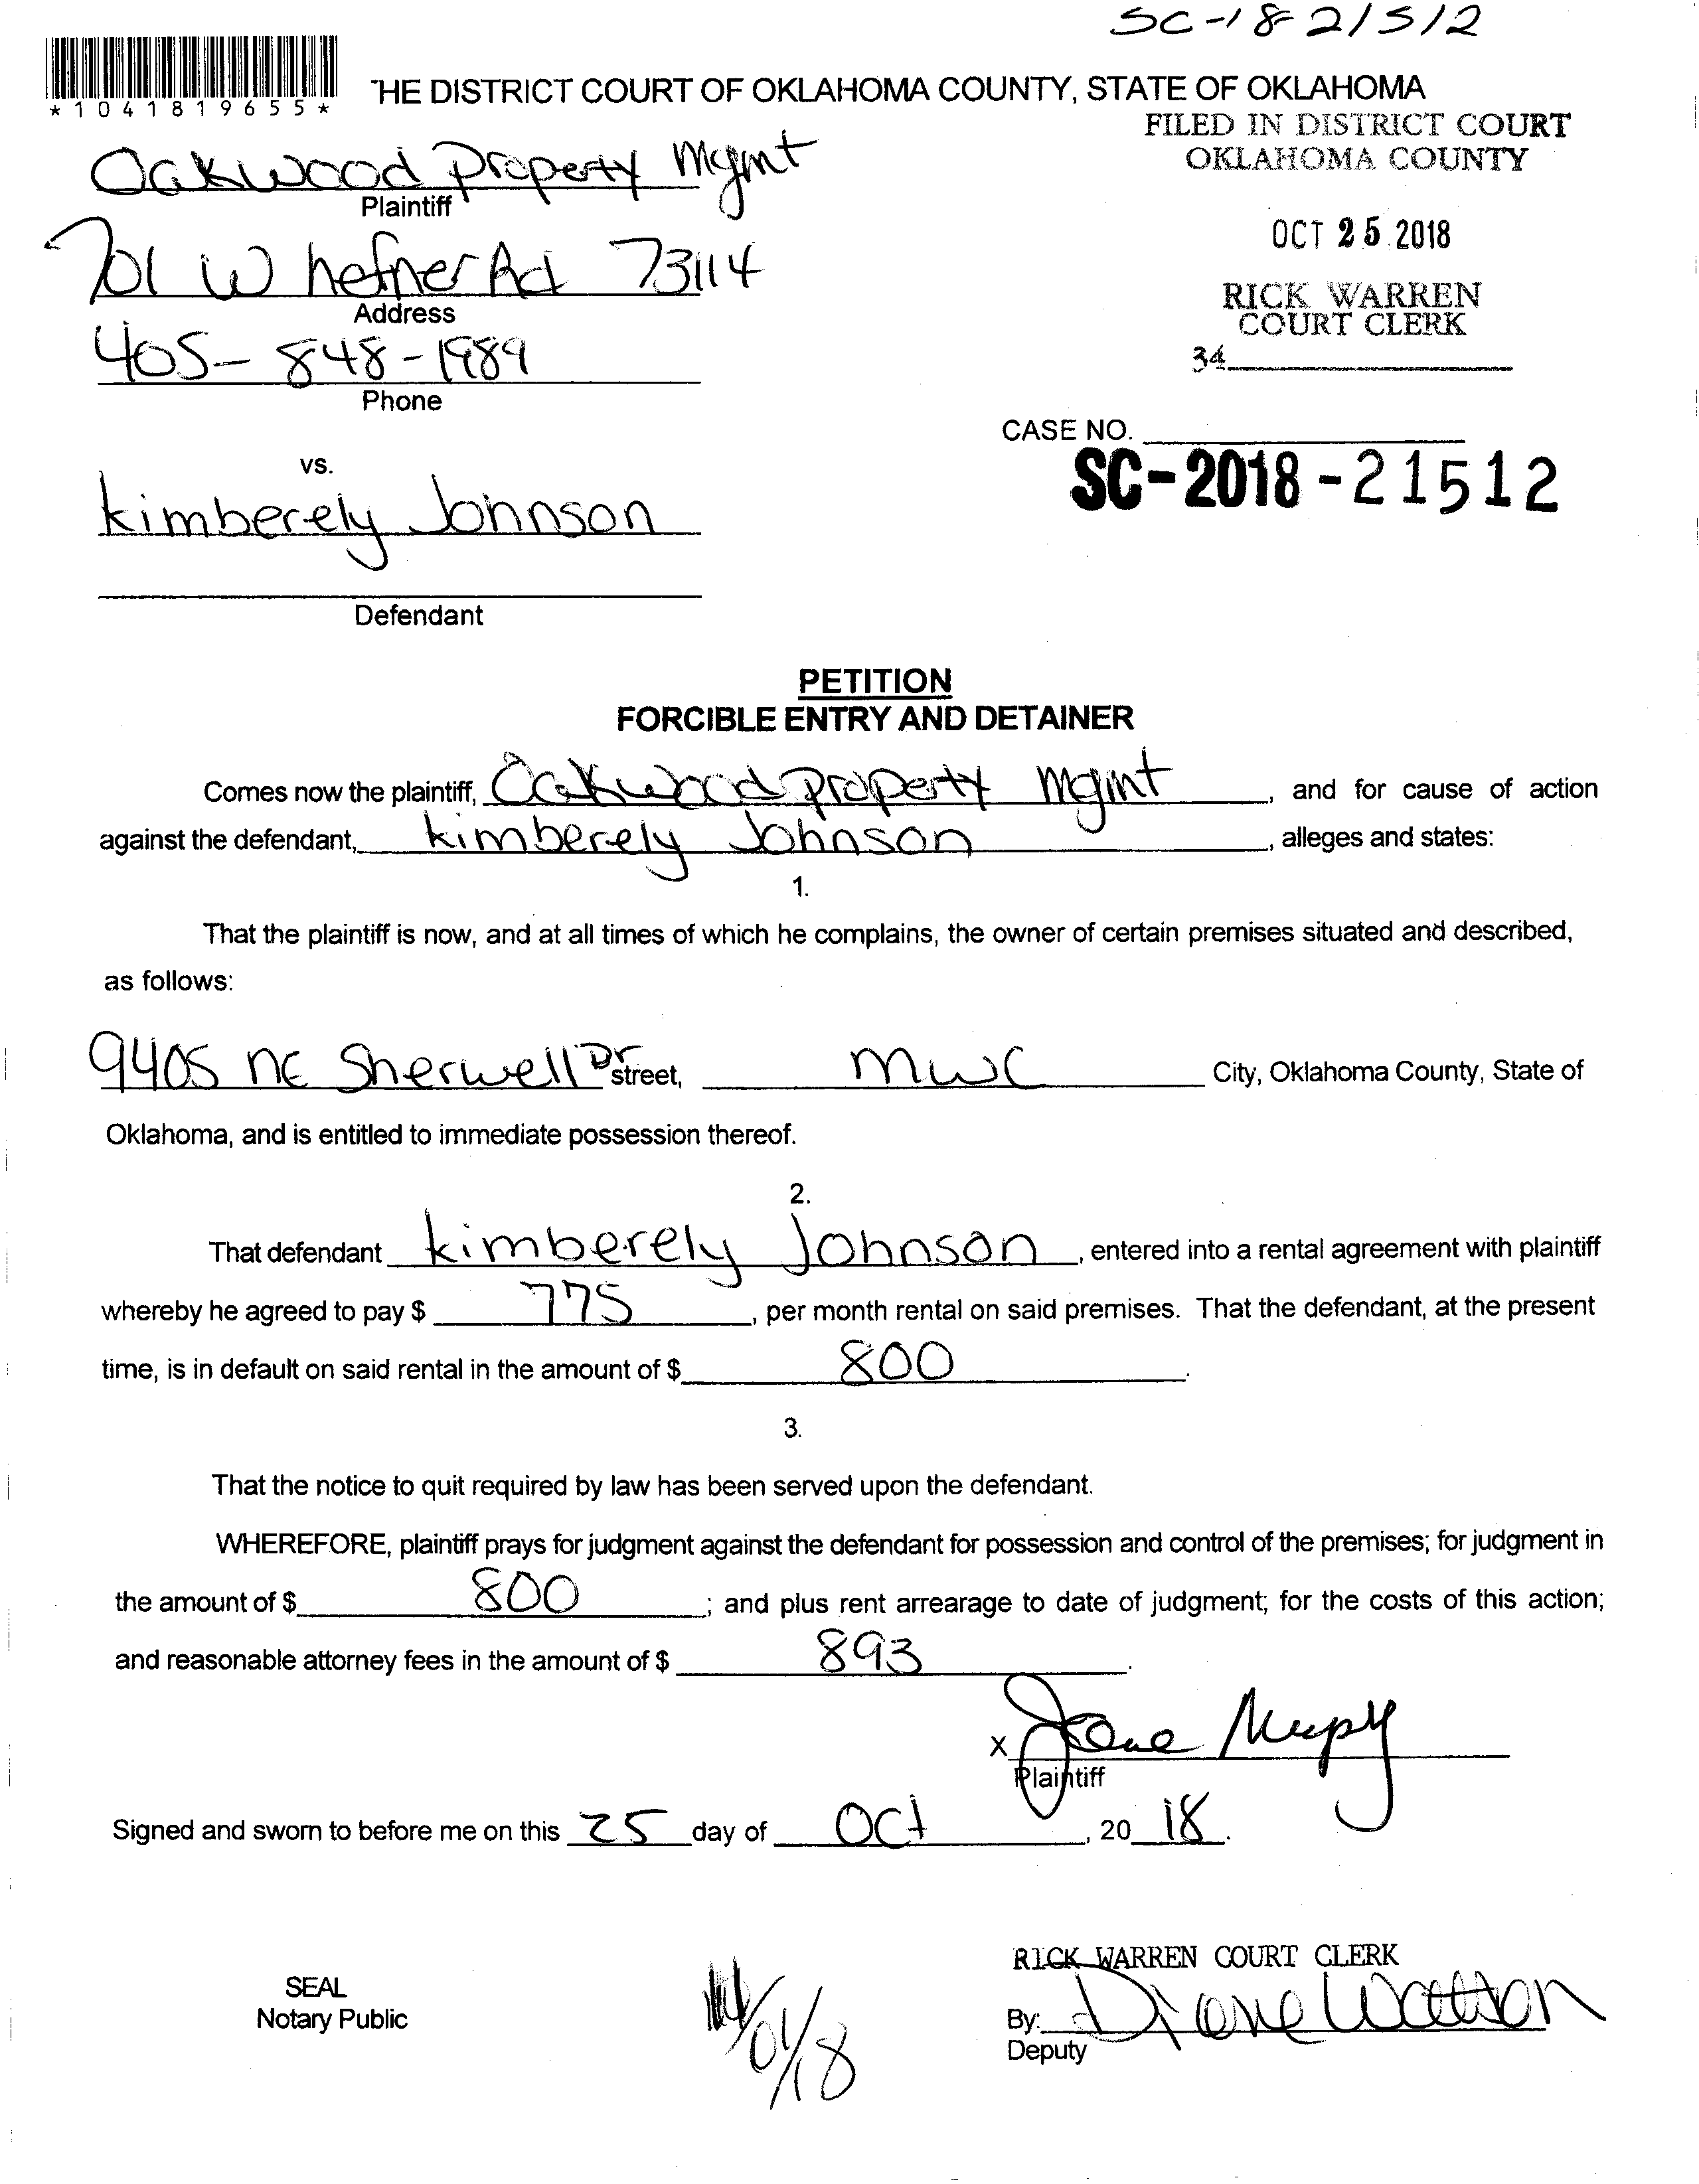 SC-18-21512
*1041819655*
THE DISTRICT COURT OF OKLAHOMA COUNTY, STATE OF OKLAHOMA
FILED IN DISTRICT COURT
OKLAHOMA COUNTY
Oakwood Property Mgmt
Plaintiff
OCT 25 2018
701 W hefner Rd 73114
Address
RICK WARREN
COURT CLERK
405-848-1989
34
Phone
CASE NO.
SC-2018-21512
vs.
kimberely Johnson
Defendant
PETITION
FORCIBLE ENTRY AND DETAINER
Comes now the plaintiff, Oakwood Property Mgmt, and for cause of action
against the defendant, kimberely Johnson, alleges and states:
1.
That the plaintiff is now, and at all times of which he complains, the owner of certain premises situated and described,
as follows:
9405 NE Sherwell Dr street, MWC City, Oklahoma County, State of
Oklahoma, and is entitled to immediate possession thereof.
2.
That defendant kimberely Johnson, entered into a rental agreement with plaintiff
whereby he agreed to pay $ 775, per month rental on said premises. That the defendant, at the present
time, is in default on said rental in the amount of $ 800.
3.
That the notice to quit required by law has been served upon the defendant.
WHEREFORE, plaintiff prays for judgment against the defendant for possession and control of the premises; for judgment in
the amount of $ 800; and plus rent arrearage to date of judgment; for the costs of this action;
and reasonable attorney fees in the amount of $ 893.
x
Plaintiff
Signed and sworn to before me on this 25 day of Oct, 2018.
RICK WARREN COURT CLERK
SEAL
Notary Public
By: Diane Watson
Deputy